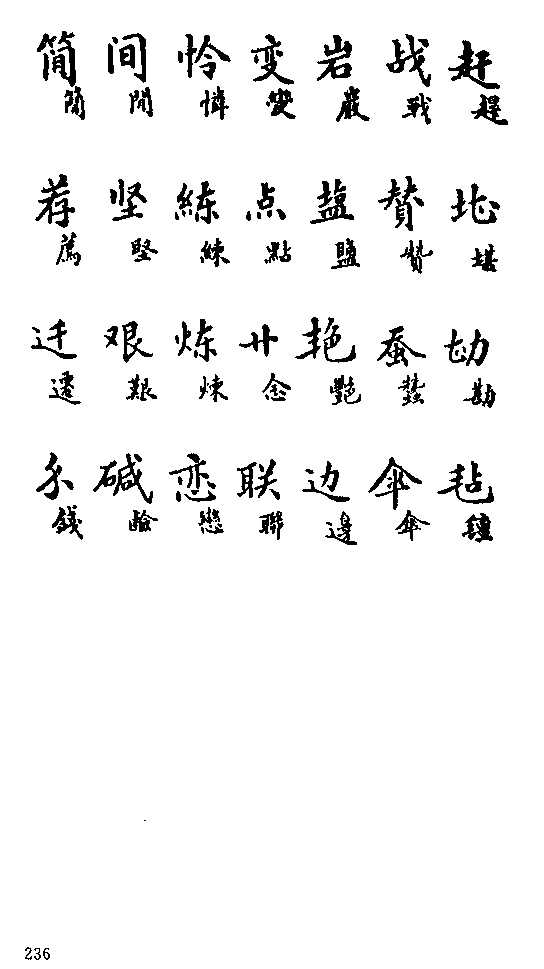 简 间 怜 变 岩 战 赶
簡 間 憐 變 巖 戰 趕
荐 坚 练 点 盐 赞
薦 堅 練 點 鹽 贊 堪
迁 艰 炼 廿 艳 蚕
遷 艱 煉 念 艷 蠶 勘
碱 恋 联 边 伞 毡
錢 鹼 戀 聯 邊 傘 氈
236